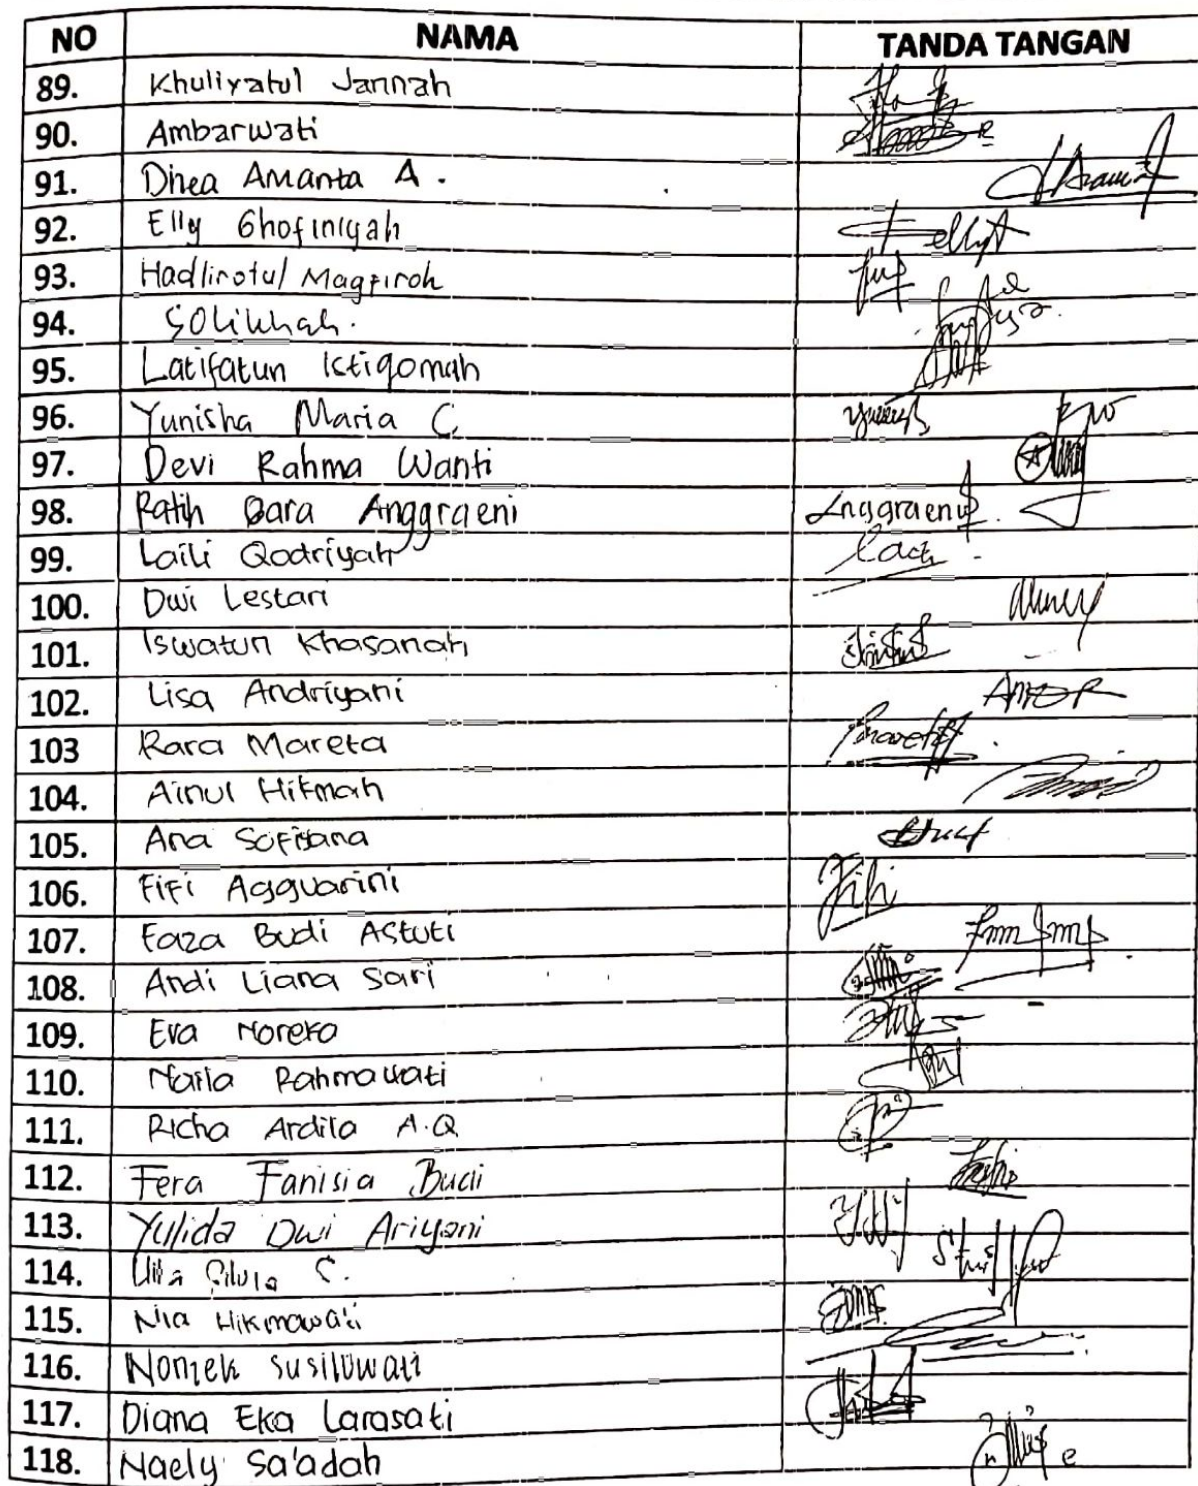 NO NAMA TANDA TANGAN
89. Khuliyatul Jannah
90. Ambarwati
91. Dhea Amanta A.
92. Elly Ghofiniyah
93. Hadlirotul Magfiroh
94. Solikhah.
95. Latifatun Istiqomah
96. Yunisha Maria C
97. Devi Rahma Wanti
98. Ratih Dara Anggraeni Anggraeni
99. Laili Qodriyah
100. Dwi Lestari
101. Iswatun Khasanah
102. Lisa Andriyani
103 Rara Mareta
104. Ainul Hikmah
105. Ana Sofiana
106. Fifi Agguarini Fifi
107. Faza Budi Astuti
108. Andi Liana Sari
109. Eva Noreka
110. Naila Rahmawati
111. Richa Ardila A.Q
112. Fera Fanisia Budi
113. Yulida Dwi Ariyani
114. Silvia S.
115. Nia Hikmawati
116. Susilowati
117. Diana Eka Larasati
118. Naely Sa'adah